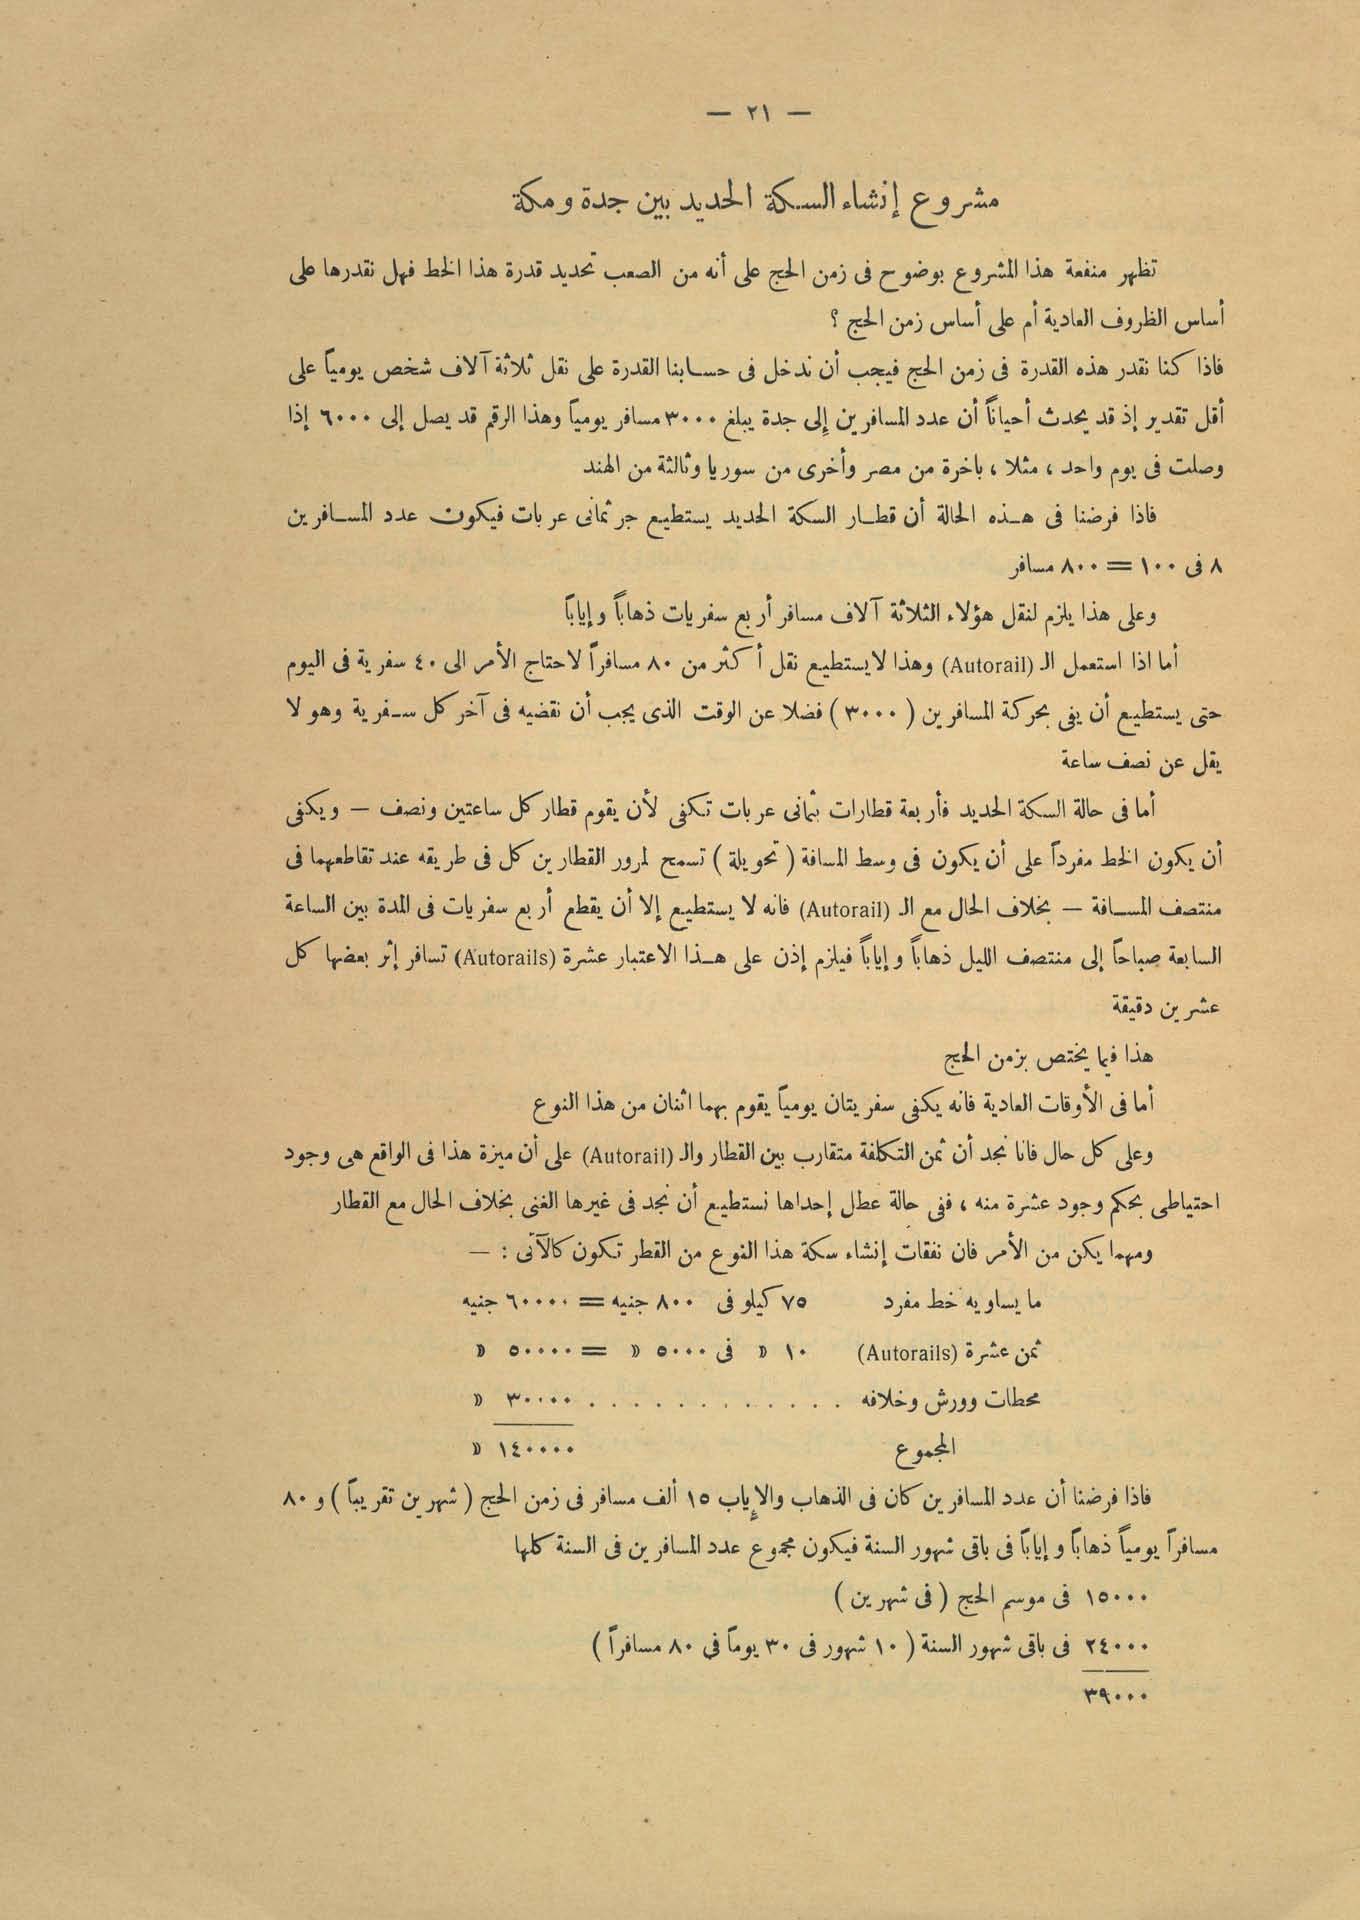 — ٢١ —
مشروع إنشاء السكة الحديد بين جدة ومكة
تظهر منفعة هذا المشروع بوضوح فى زمن الحج على أنه من الصعب تحديد قدرة هذا الخط فهل نقدرها على
أساس الظروف العادية أم على أساس زمن الحج ؟
فاذا كنا نقدر هذه القدرة فى زمن الحج فيجب أن ندخل فى حسابنا القدرة على نقل ثلاثة آلاف شخص يومياً على
أقل تقدير إذ قد يحدث أحياناً أن عدد المسافرين إلى جدة يبلغ ٣٠٠٠ مسافر يومياً وهذا الرقم قد يصل إلى ٦٠٠٠ إذا
وصلت فى يوم واحد ، مثلا ، باخرة من مصر وأخرى من سوريا وثالثة من الهند
فاذا فرضنا فى هذه الحالة أن قطار السكة الحديد يستطيع جر ثمانى عربات فيكون عدد المسافرين
٨ فى ١٠٠ = ٨٠٠ مسافر
وعلى هذا يلزم لنقل هؤلاء الثلاثة آلاف مسافر أربع سفريات ذهاباً وإياباً
أما اذا استعمل الـ (Autorail) وهذا لايستطيع نقل أكثر من ٨٠ مسافراً لاحتاج الأمر الى ٤٠ سفرية فى اليوم
حتى يستطيع أن يفى بحركة المسافرين ( ٣٠٠٠ ) فضلا عن الوقت الذى يجب أن نقضيه فى آخر كل سفرية وهو لا
يقل عن نصف ساعة
أما فى حالة السكة الحديد فأربعة قطارات بثمانى عربات تكفى لأن يقوم قطار كل ساعتين ونصف — ويكفى
أن يكون الخط مفرداً على أن يكون فى وسط المسافة ( تحويلة ) تسمح لمرور القطارين كل فى طريقه عند تقاطعهما فى
منتصف المسافة — بخلاف الحال مع الـ (Autorail) فانه لا يستطيع إلا أن يقطع أربع سفريات فى المدة بين الساعة
السابعة صباحاً إلى منتصف الليل ذهاباً وإياباً فيلزم إذن على هذا الاعتبار عشرة (Autorails) تسافر إثر بعضها كل
عشرين دقيقة
هذا فيما يختص بزمن الحج
أما فى الأوقات العادية فانه يكفى سفريتان يومياً يقوم بهما اثنان من هذا النوع
وعلى كل حال فانا نجد أن ثمن التكلفة متقارب بين القطار والـ (Autorail) على أن ميزة هذا فى الواقع هى وجود
احتياطى بحكم وجود عشرة منه ، ففى حالة عطل إحداها نستطيع أن نجد فى غيرها الغنى بخلاف الحال مع القطار
ومهما يكن من الأمر فان نفقات إنشاء سكة هذا النوع من القطر تكون كالآتى : —
ما يساويه خط مفرد ٧٥ كيلو فى ٨٠٠ جنيه = ٦٠٠٠٠ جنيه
ثمن عشرة (Autorails) ١٠ » فى ٥٠٠٠ » = ٥٠٠٠٠ »
محطات وورش وخلافه . . . . . . . . . . . . ٣٠٠٠٠ »
المجموع ١٤٠٠٠٠ »
فاذا فرضنا أن عدد المسافرين كان فى الذهاب والإياب ١٥ ألف مسافر فى زمن الحج ( شهرين تقريباً ) و ٨٠
مسافراً يومياً ذهاباً وإياباً فى باقى شهور السنة فيكون مجموع عدد المسافرين فى السنة كلها
١٥٠٠٠ فى موسم الحج ( فى شهرين )
٢٤٠٠٠ فى باقى شهور السنة ( ١٠ شهور فى ٣٠ يوماً فى ٨٠ مسافراً )
٣٩٠٠٠